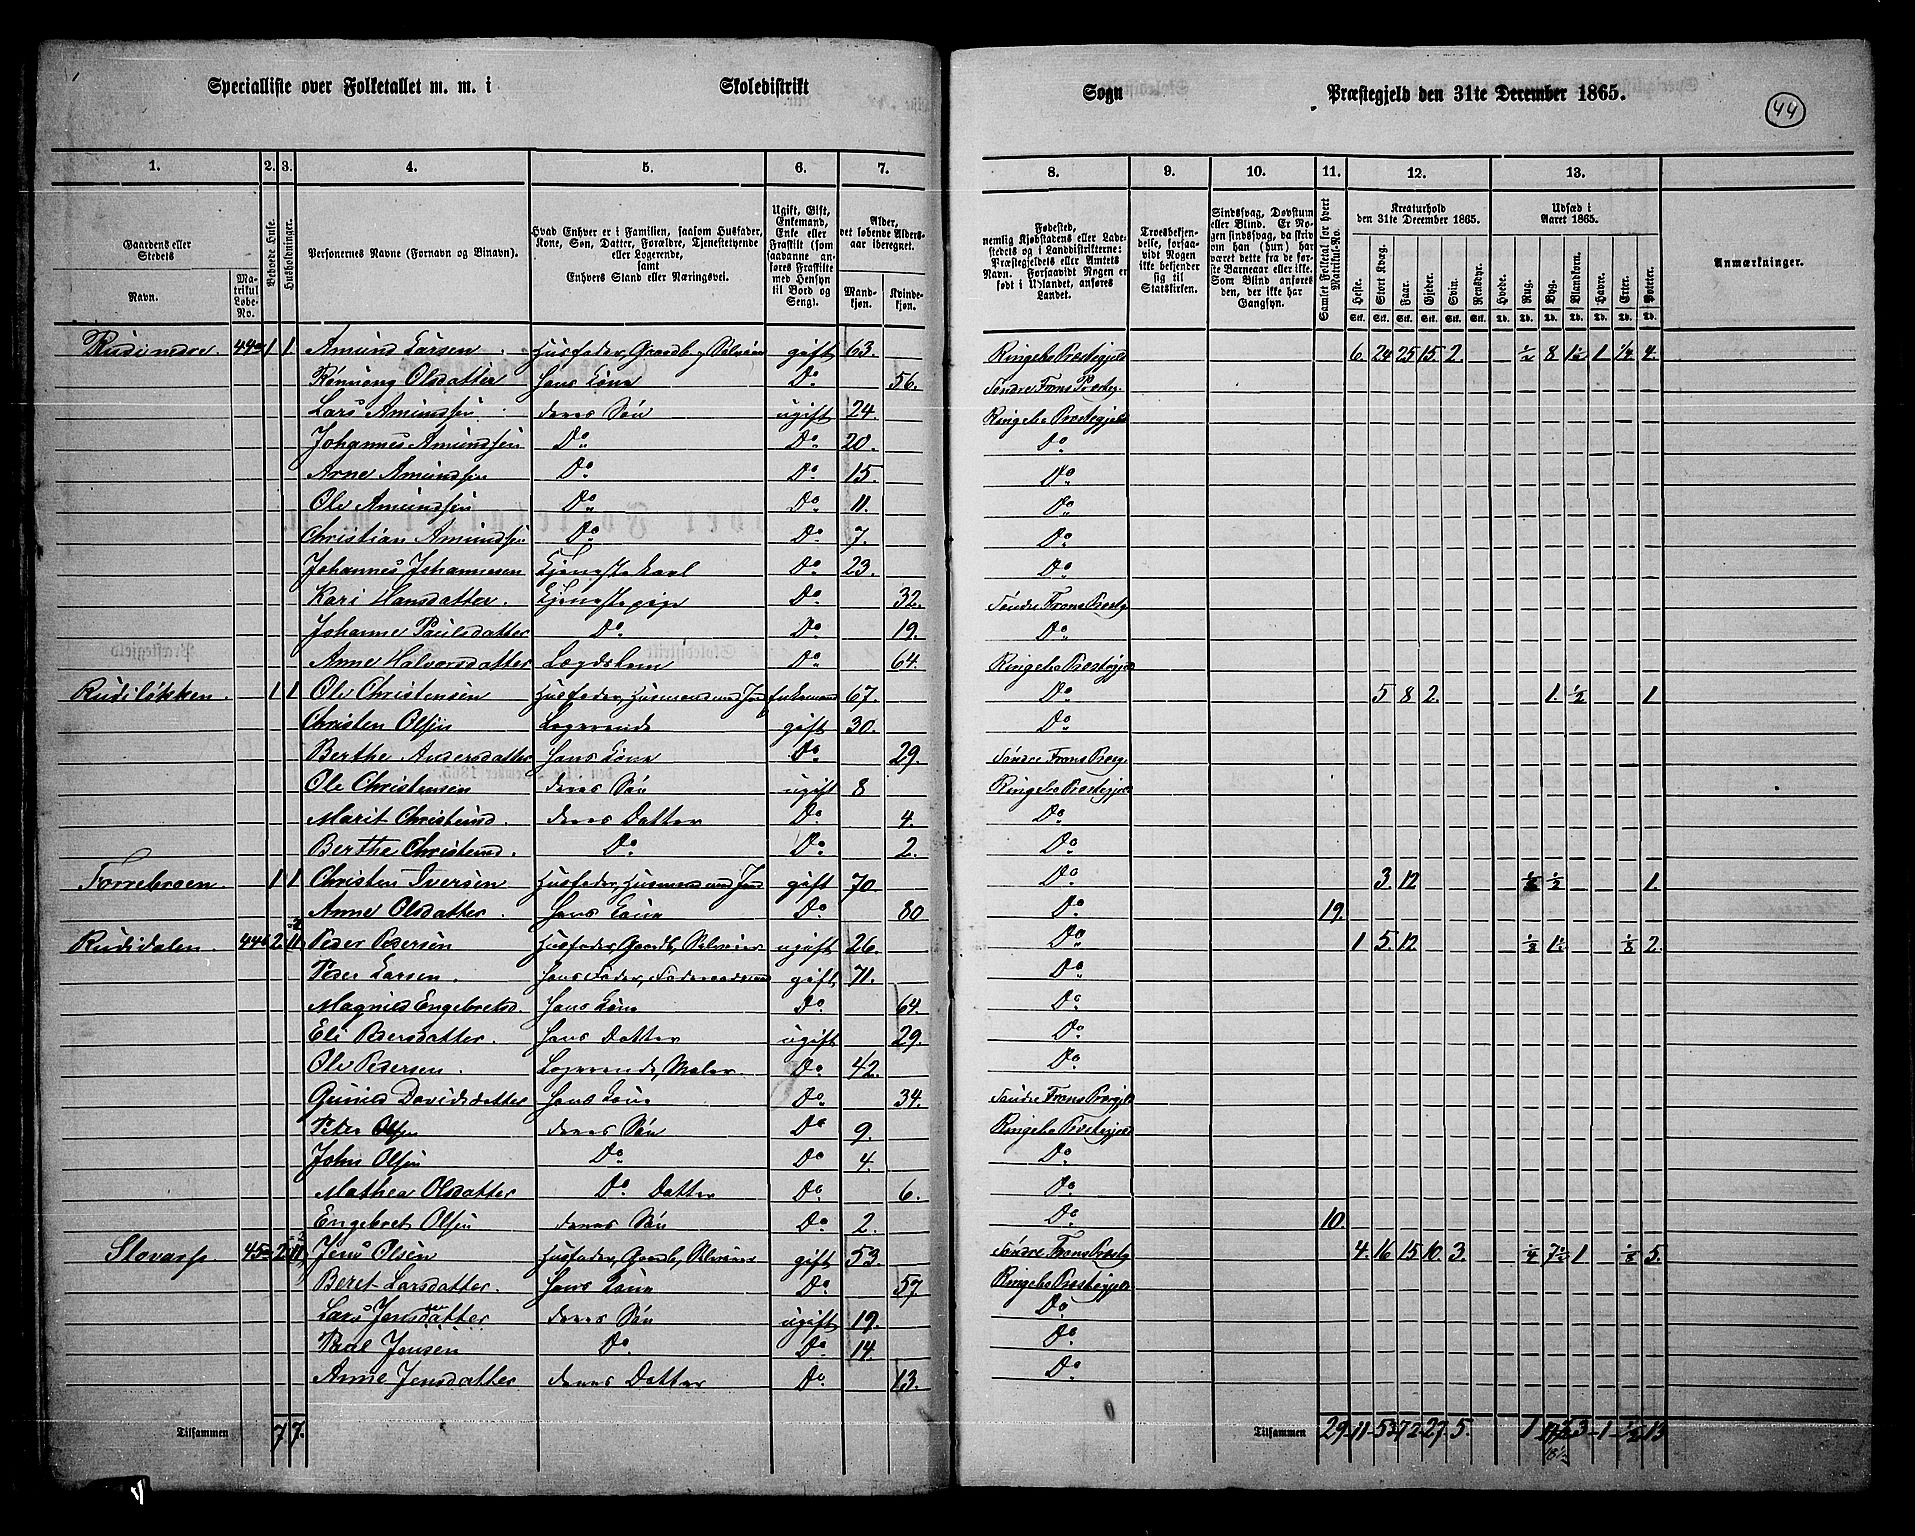 Specialliste over Folketallet m. m. i Skoledistrikt Sogn Præstegjeld den 31te December 1865. 44
1. 2. 3. 4. 5. 6. 7. 8. 9. 10. 11. 12. 13.
Gaardens eller Stedets Navn. Matrikul Løbe-No. Beboede Huse. Husholdninger. Personernes Navne (Fornavn og Binavn). Hvad Enhver er i Familien, saasom Husfader, Kone, Søn, Datter, Forældre, Tjenestetyende eller Logerende, samt Enhvers Stand eller Næringsvei. Ugift, Gift, Enkemand, Enke eller Fraskilt (som saadanne anføres Fraskilte med Hensyn til Bord og Seng). Alder, det løbende Aldersaar iberegnet. Mandkjøn. Kvindekjøn. Fødested, nemlig Kjøbstadens eller Ladestedets og i Landdistrikterne: Præstegjeldets eller Amtets Navn. Forsaavidt Nogen er født i Udlandet, anføres Landet. Troesbekjendelse, forsaavidt Nogen ikke bekjender sig til Statskirken. Sindssvag, Døvstum eller Blind. Er Nogen sindssvag, da skriv om han (hun) har været dette fra de første Barneaar eller ikke. Som Blind anføres den, der ikke har Gangsyn. Samlet Folketal for hvert Matrikul-No. Kreaturhold den 31te December 1865. Heste. Stort Kvæg. Faar. Gjeder. Svin. Rensdyr. Udsæd i Aaret 1865. Hvede. Rug. Byg. Blandkorn. Havre. Erter. Poteter. Anmærkninger.
Stk. Stk. Stk. Stk. Stk. Stk. Td. Td. Td. Td. Td. Td. Td.
Rudi nedre 44a 1 1 Amund Larsen Husfader, Gaardb. Selveier gift 63. Ringebo Præstegjeld 6. 24 25 15. 2. 1/2 8 1 1/2 1 1/4 4.
Rønnoug Olsdatter hans Kone Do 56. Søndre Frons Præsteg.
Lars Amundsen deres Søn ugift 24. Ringebo Præstegjeld
Johannes Amundsen Do Do 20. Do
Arne Amundsen Do Do 15. Do
Ole Amundsen Do Do 11. Do
Christian Amundsen Do Do 7. Do
Johannes Johannesen Tjenestekarl Do 23. Do
Kari Hansdatter. Tjenestepige Do 32. Søndre Frons Præstg.
Johanne Paulsdatter Do Do 19. Do
Anne Halvorsdatter Lægdslem Do 64. Ringebo Præstegjeld
Rudiløkken. 1 1 Ole Christensen Husfader, Husmand med Jord Enkemand 67. Do 5 8 2. 1. 1/2 1
Christen Olsen Logerende gift 30. Do
Berthe Andersdatter hans Kone Do 29. Søndre Frons Præsg.
Ole Christensen deres Søn ugift 8 Ringebo Præstegjeld
Marit Christensd. deres Datter Do 4. Do
Berthe Christensd. Do Do 2. Do
Torrebraen. 1 1 Christen Iversen Husfader, Husmand med Jord gift 70 Do 3. 12 1/8 1/2 1.
Anne Olsdatter. hans Kone Do 80 Do 19.
Rudidalen. 44b 2 2 Peder Pedersen Husfader, Gaardb., Selveier ugift 26. Do 1 5. 12 1/8 1 1/2 1/8 2.
Peder Larsen. hans Fader, Føderaadsmand gift 71. Do
Magnild Engebretsd. hans Kone Do 64. Do
Eli Pedersdatter. hans Datter ugift 29. Do
Ole Pedersen. Logerende, Maler. Do 42. Do
Gunild Davidsdatter hans Kone Do 34. Søndre Frons Præsgjeld
Peder Olsen deres Søn Do 9. Ringebo Præstegjeld
John Olsen Do Do 4. Do
Mathea Olsdatter Do Datter Do 6. Do
Engebret Olsen deres Søn Do 2. Do 10.
45 2 Jens Olsen Husfader, Gaardb., Selveier gift 53. Søndre Frons Præstg 4. 16 15 10. 3. 1/4 7 1/2 1 1/8 5.
Beret Larsdatter. hans Kone Do 57 Ringebo Præstegjeld
Lars Jensdatter sen deres Søn ugift 19. Do
Paul Jensen Do. Do 14. Do
Anne Jensdatter deres Datter Do. 13. Do
Tilsammen 7 7. Tilsammen 29. 11. 53 72. 27. 5. 1 3 1 1/2 13
18 1/2